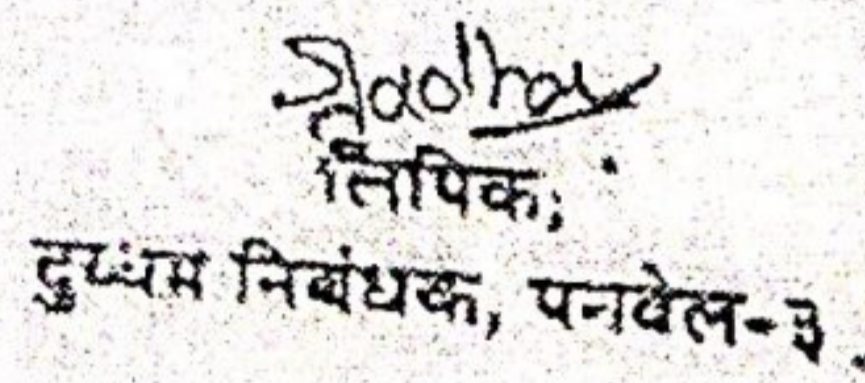 लिपिक,
दुय्यम निबंधक, पनवेल-३